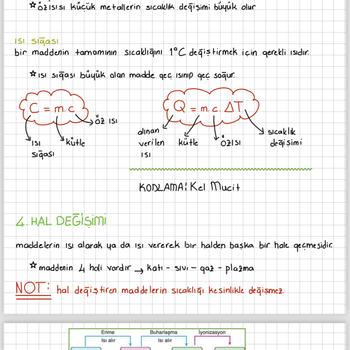 ☆özısısı küçük metallerin sıcaklık değişimi büyük olur
ISI SIĞASI
bir maddenin tamamının sıcaklığını 1°C değiştirmek için gerekli ısıdır.
☆ISI sığası büyük olan madde geç ısınıp geç soğur.
C = m.c
Q = m.c.ΔT
öz ısı
ısı sığası
kütle
alınan verilen ısı
kütle
özısı
sıcaklık değişimi
KODLAMA: Kel Mucit
4. HAL DEĞİŞİMİ
maddelerin ısı alarak ya da ısı vererek bir halden başka bir hale geçmesidir.
☆maddenin 4 hali vardır → katı - sıvı - gaz - plazma
NOT: hal değiştiren maddelerin sıcaklığı kesinlikle değişmez.
Erime Buharlaşma İyonizasyon
Isı alır Isı alır